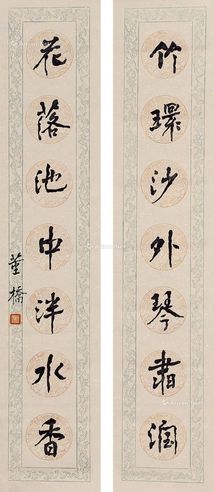 竹環沙外琴書潤
花落池中泮水香
董橋